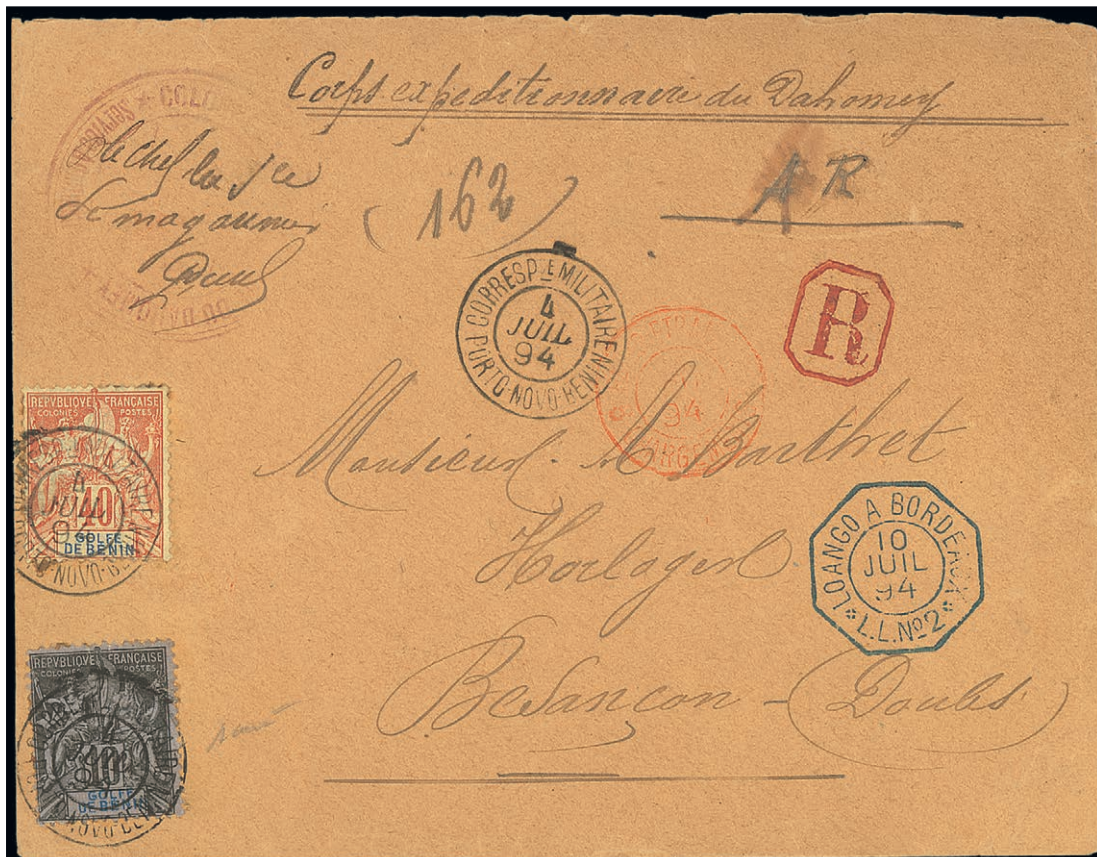 Corps expeditionnaire du Dahomey
COLO
SERVICE
DU DAHOMEY
le chef du Sce
Le magasinier
(162)
A R
CORRESP. E MILITAIRE
4
JUIL
94
PORTO-NOVO-BENIN
R
94
REPVBLIQVE FRANÇAISE
COLONIES POSTES
40
GOLFE
DE BÉNIN
4
JUIL
94
PORTO-NOVO-BENIN
Monsieur A Barthet
Horloger
Besançon - (Doubs)
LOANGO A BORDEAUX
10
JUIL
94
L.L. Nº 2
REPVBLIQVE FRANÇAISE
COLONIES POSTES
10
GOLFE
DE BÉNIN